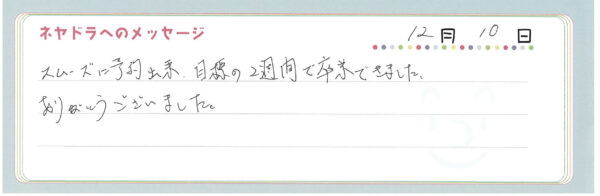 ネヤドラへのメッセージ 12月10日
スムーズに予約出来、目標の2週間で卒業できました。
ありがとうございました。